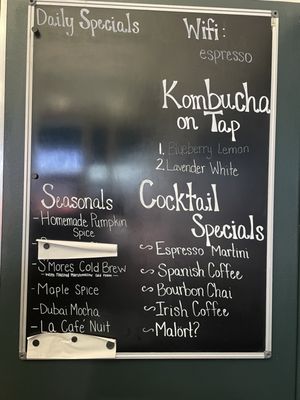 Daily Specials
Wifi:
espresso
Kombucha
on Tap
1. Blueberry Lemon
2. Lavender White
Seasonals
- Homemade Pumpkin
Spice
- S'mores Cold Brew
with Toasted Marshmallow Cold Foam
- Maple Spice
- Dubai Mocha
- La Café Nuit
Cocktail
Specials
~ Espresso Martini
~ Spanish Coffee
~ Bourbon Chai
~ Irish Coffee
~ Malort?